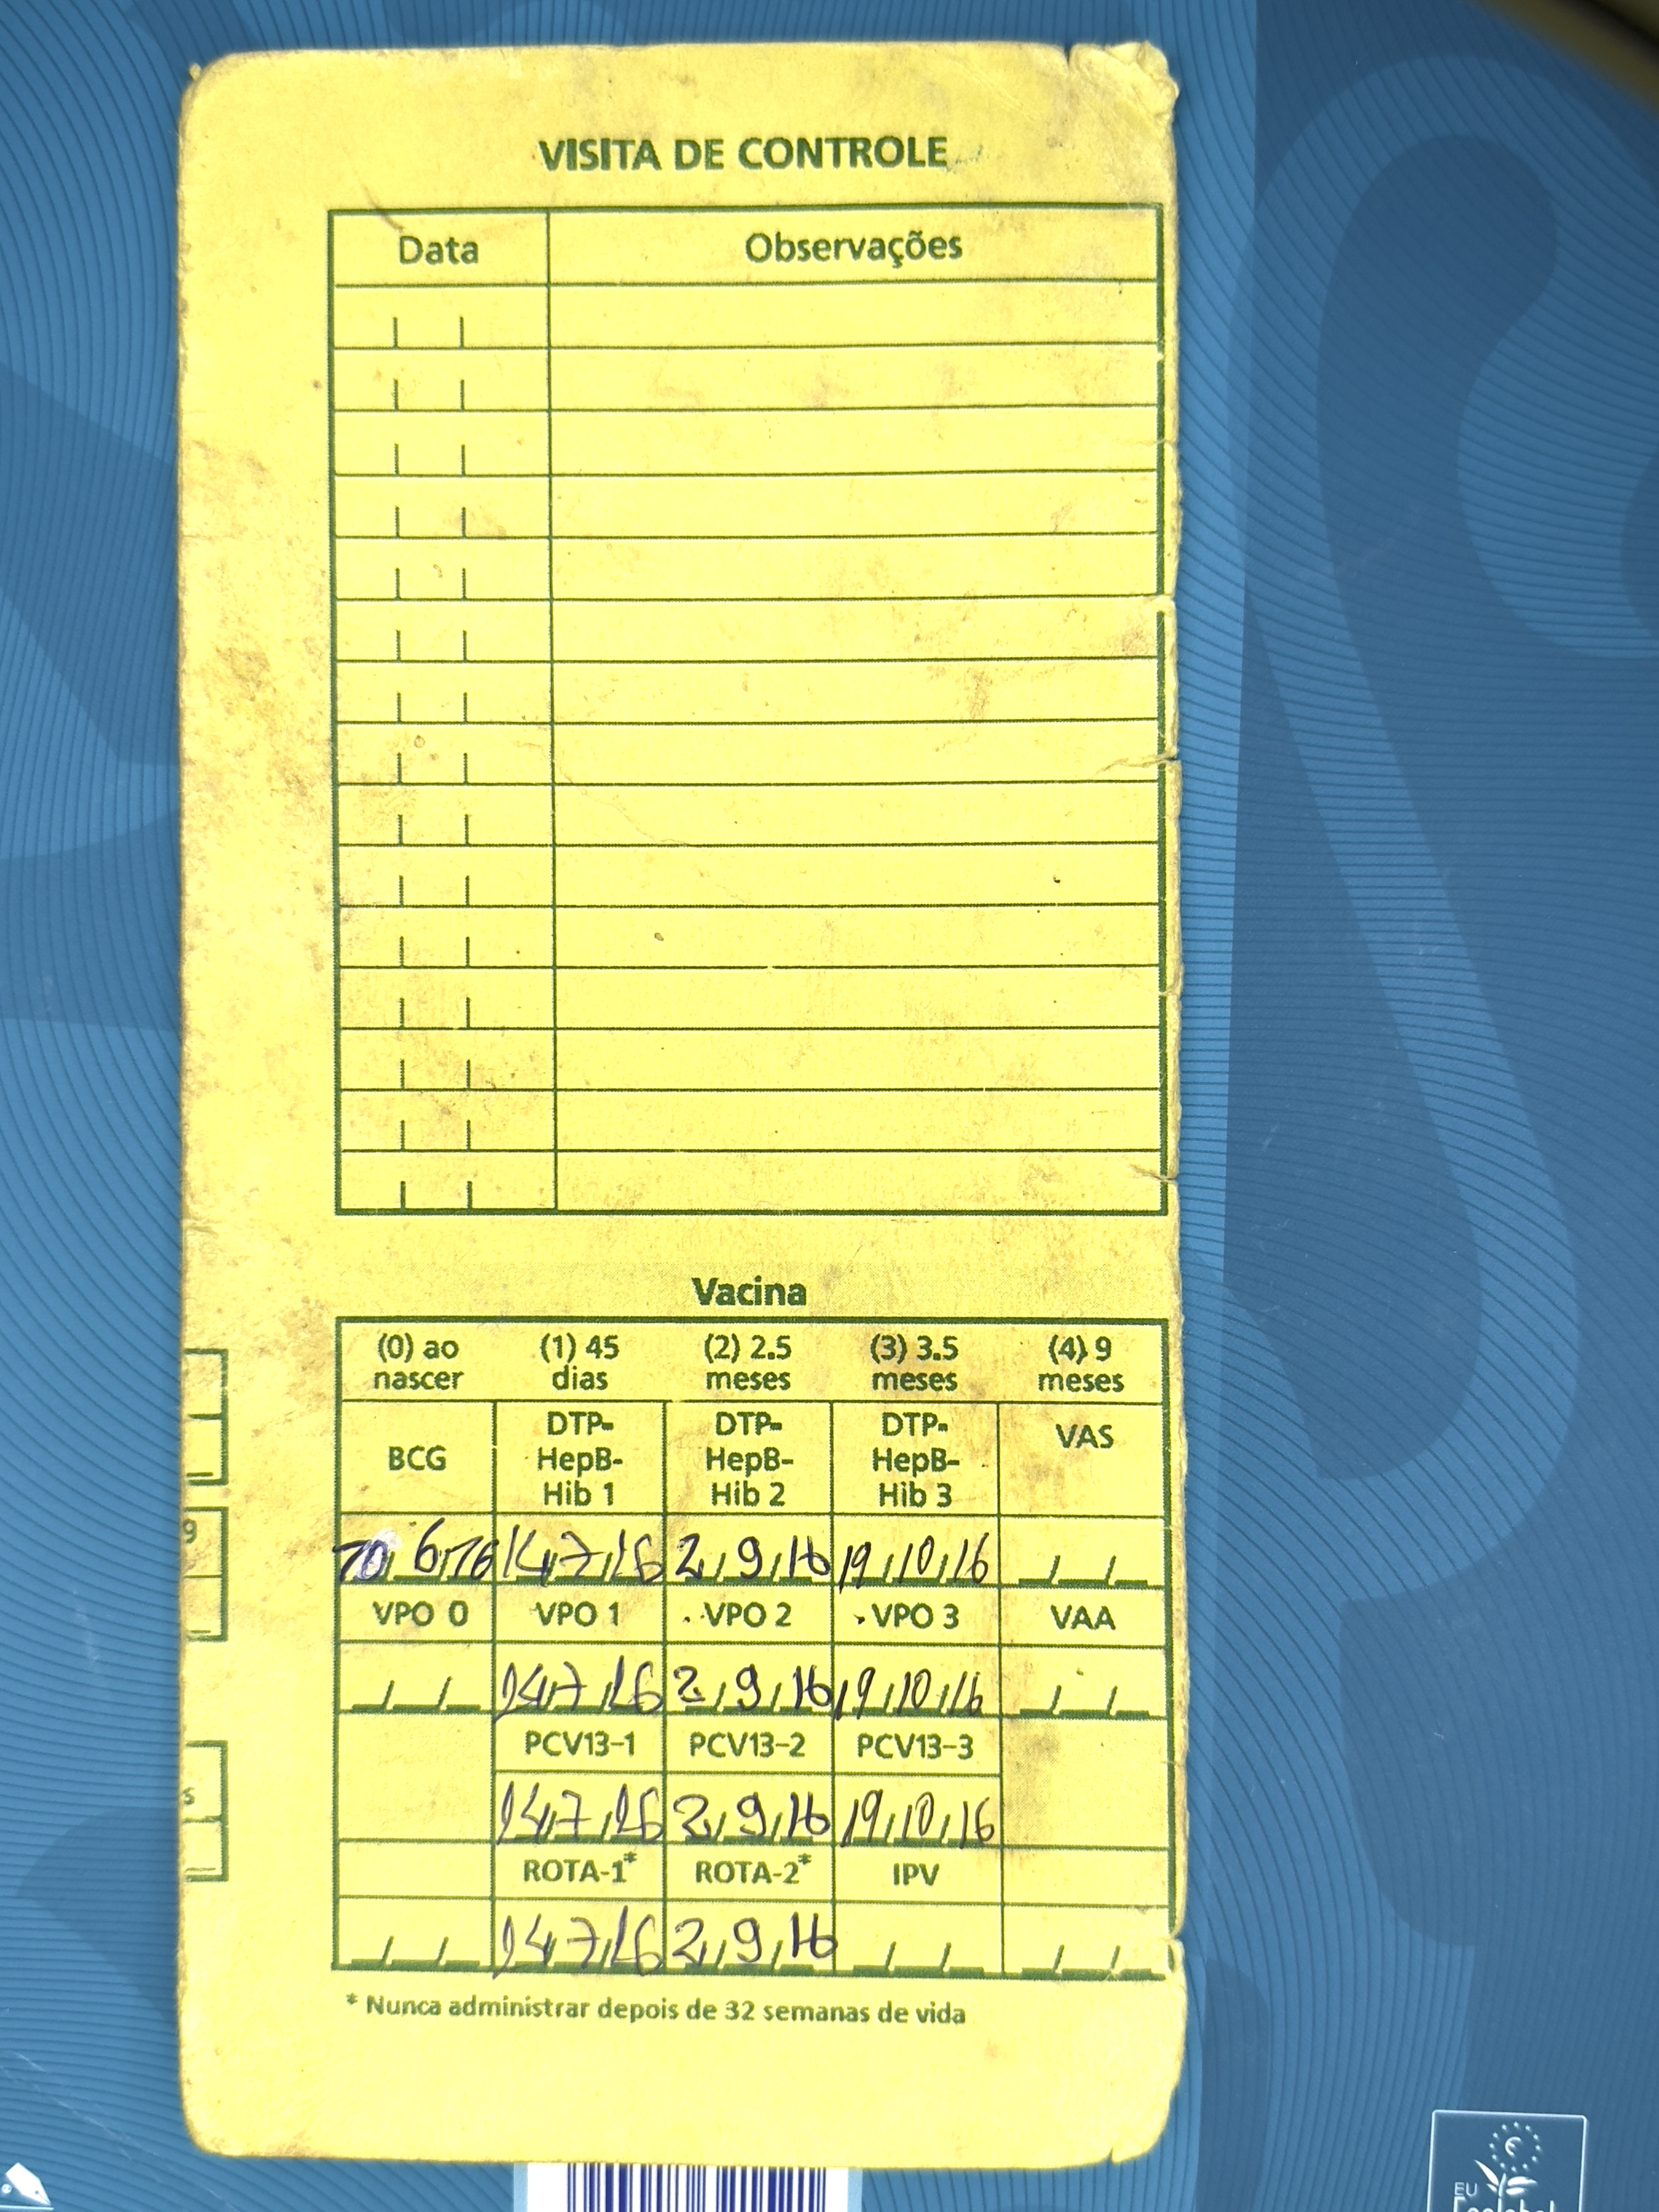 VISITA DE CONTROLE
Data Observações
Vacina
(0) ao nascer (1) 45 dias (2) 2.5 meses (3) 3.5 meses (4) 9 meses
BCG DTP-HepB-Hib 1 DTP-HepB-Hib 2 DTP-HepB-Hib 3 VAS
14/7/16 2/9/16 19/10/16
VPO 0 VPO 1 VPO 2 VPO 3 VAA
14/7/16 2/9/16 19/10/16
PCV13-1 PCV13-2 PCV13-3
14/7/16 2/9/16 19/10/16
ROTA-1* ROTA-2* IPV
14/7/16 2/9/16
* Nunca administrar depois de 32 semanas de vida
9
s
EU